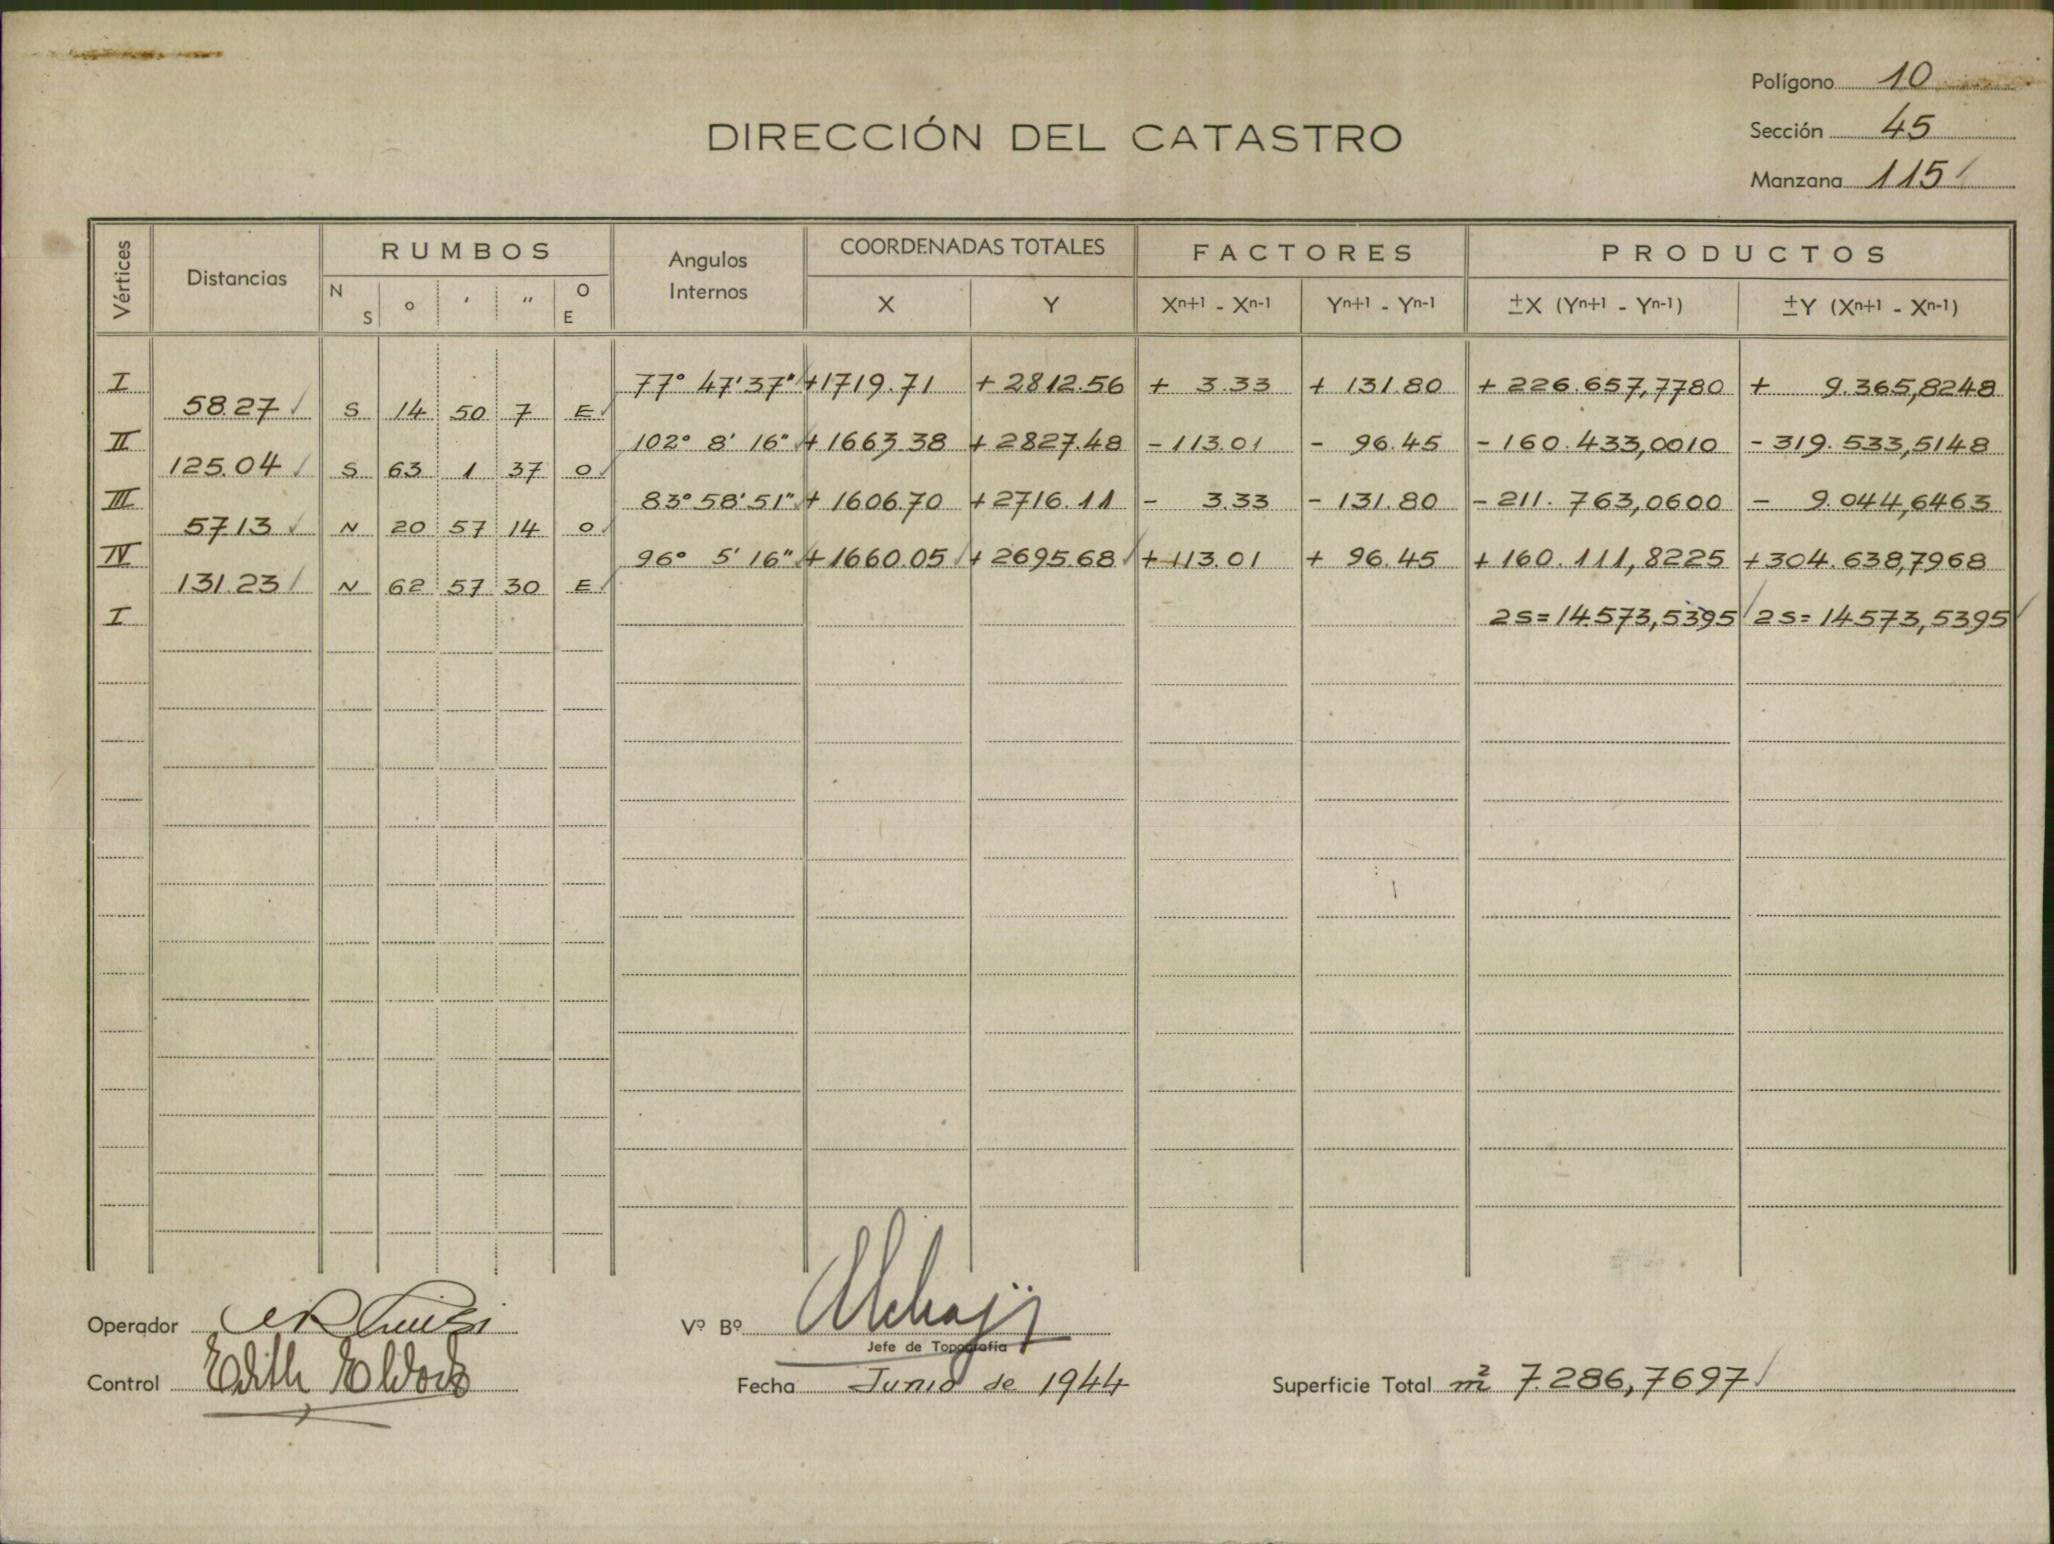 Polígono 10
Sección 45
Manzana 115
DIRECCIÓN DEL CATASTRO
Vértices Distancias RUMBOS Angulos Internos COORDENADAS TOTALES FACTORES PRODUCTOS
N S ° ′ ″ O E X Y Xn+1 - Xn-1 Yn+1 - Yn-1 ±X (Yn+1 - Yn-1) ±Y (Xn+1 - Xn-1)
I 77° 47' 37" +1719.71 +2812.56 + 3.33 + 131.80 +226.657,7780 + 9.365,8248
58.27 S 14 50 7 E
II 102° 8' 16" +1663.38 +2827.48 -113.01 - 96.45 -160.433,0010 -319.533,5148
125.04 S 63 1 37 O
III 83° 58' 51" + 1606.70 +2716.11 - 3.33 - 131.80 -211.763,0600 - 9.044,6463
57.13 N 20 57 14 O
IV 96° 5' 16" +1660.05 +2695.68 +113.01 + 96.45 +160.111,8225 +304.638,7968
131.23 N 62 57 30 E
I 2S=14.573,5395 2S=14573,5395
Operador
Vº Bº
Jefe de Topografía
Control Edith
Fecha Junio de 1944
Superficie Total m² 7.286,7697